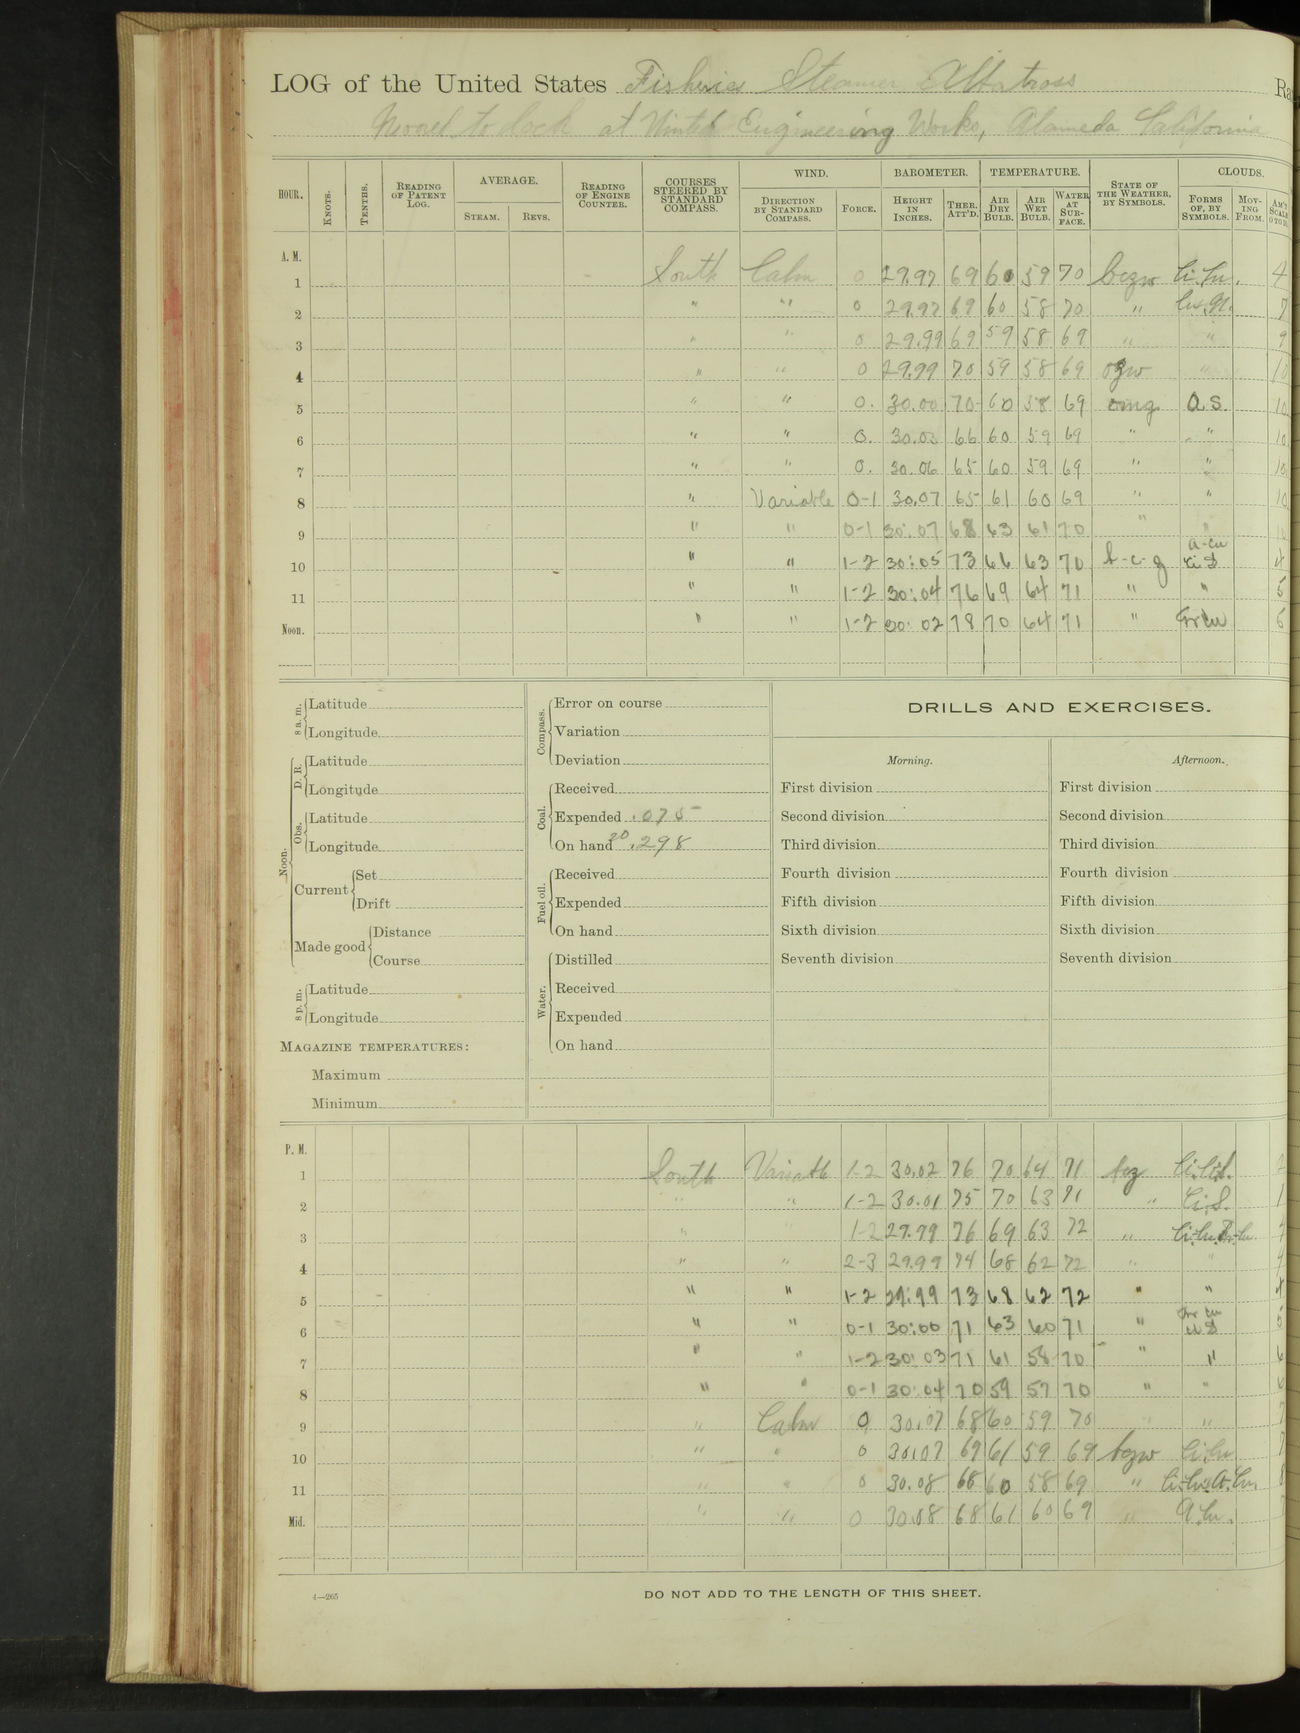 LOG of the United States Fisheries Steamer Albatross Ra
Moored to dock at United Engineering Works, Alameda California
HOUR. KNOTS. TENTHS. READING OF PATENT LOG. AVERAGE. STEAM. REVS. READING OF ENGINE COUNTER. COURSES STEERED BY STANDARD COMPASS. WIND. DIRECTION BY STANDARD COMPASS. FORCE. BAROMETER. HEIGHT IN INCHES. THER. ATT'D. TEMPERATURE. AIR DRY BULB. AIR WET BULB. WATER AT SURFACE. STATE OF THE WEATHER, BY SYMBOLS. CLOUDS. FORMS OF, BY SYMBOLS. MOVING FROM. AM'T SCALE 0 TO 10
A. M.
1 South Calm 0 29.97 69 60 59 70 bczw Ci.Cu. 4
2 " " 0 29.97 69 60 58 70 " 7
3 " " 0 29.99 69 59 58 69 " " 9
4 " " 0 29.99 70 59 58 69 ogw " 10
5 " " 0. 30.00 70 60 58 69 omg A.S. 10
6 " " 0. 30.03 66 60 59 69 " " 10
7 " " 0. 30.06 65 60 59 69 " " 10
8 " Variable 0-1 30.07 65 61 60 69 " " 10
9 " " 0-1 30.07 68 63 61 70 " "
10 " " 1-2 30.05 73 66 63 70 b-c-g A-Cu Ci S 4
11 " " 1-2 30.04 76 69 64 71 " " 5
Noon. " " 1-2 30.02 78 70 64 71 "
8 a. m. Latitude
Longitude
Noon. D. R. Latitude
Longitude
Obs. Latitude
Longitude
Current Set
Drift
Made good Distance
Course
8 p. m. Latitude
Longitude
MAGAZINE TEMPERATURES:
Maximum
Minimum
Compass. Error on course
Variation
Deviation
Coal. Received
Expended .075
On hand 20.298
Fuel oil. Received
Expended
On hand
Water. Distilled
Received
Expended
On hand
DRILLS AND EXERCISES.
Morning. Afternoon.
First division First division
Second division Second division
Third division Third division
Fourth division Fourth division
Fifth division Fifth division
Sixth division Sixth division
Seventh division Seventh division
P. M.
1 South Variable 1-2 30.02 76 70 64 71 bcz 2
2 " " 1-2 30.01 75 70 63 71 " Ci.S. 1
3 " 1-2 29.99 76 69 63 72 "
4 " " 2-3 29.99 74 68 62 72 " "
5 " " 1-2 29.99 73 68 62 72 " " 4
6 " " 0-1 30.00 71 63 60 71 " 5
7 " " 1-2 30.03 71 61 58 70 " " 6
8 " " 0-1 30.04 70 59 57 70 " "
9 " Calm 0 30.07 68 60 59 70 " " 7
10 " " 0 30.07 69 61 59 69 bczw Ci.Cu 7
11 " " 0 30.08 68 60 58 69 " 8
Mid. " " 0 30.08 68 61 60 69 " A.Cu.
4—265 DO NOT ADD TO THE LENGTH OF THIS SHEET.